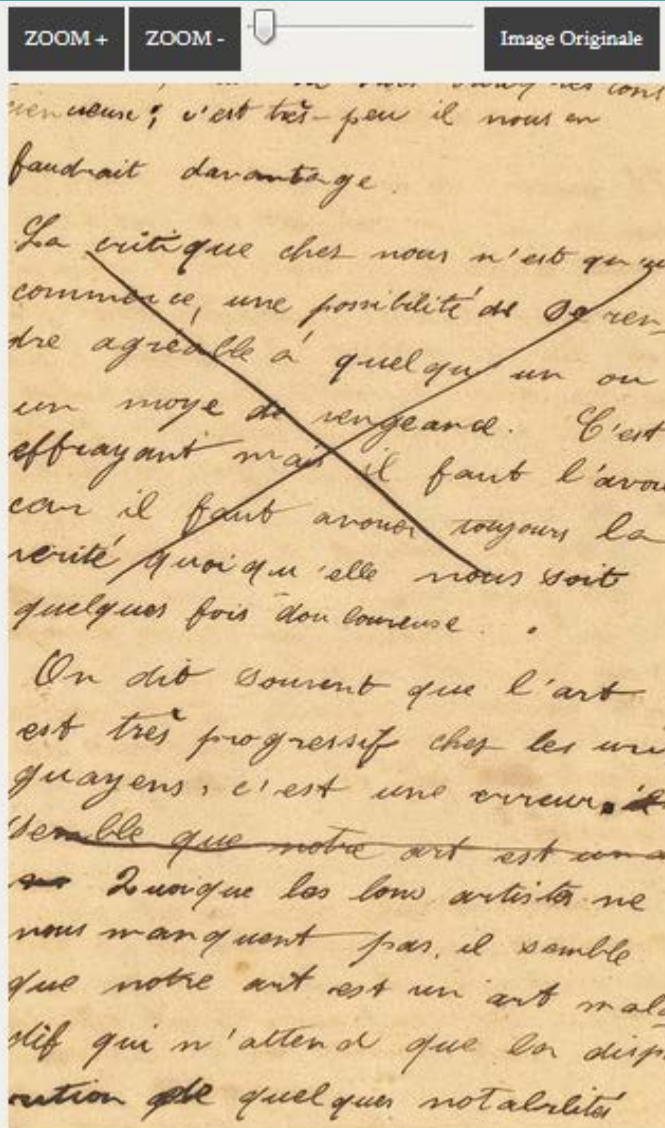 ZOOM + ZOOM - Image Originale
c'est très-peu il nous en
faudrait davantage.
La critique chez nous n'est qu'u
commerce, une possibilité de se ren-
dre agréable à quelqu'un ou
un moye de vengeance. C'est
effrayant mais il faut l'avou
car il faut avouer toujours la
verité quoiqu'elle nous soit
quelques fois douloureuse.
On dit souvent que l'art
est très progressif chez les uru
guayens, c'est une erreur. il
semble que notre art est un a
Quoique les bons artistes ne
nous manquent pas, il semble
que notre art est un art mala
dif qui n'attend que la disp
rution de quelques notabilités